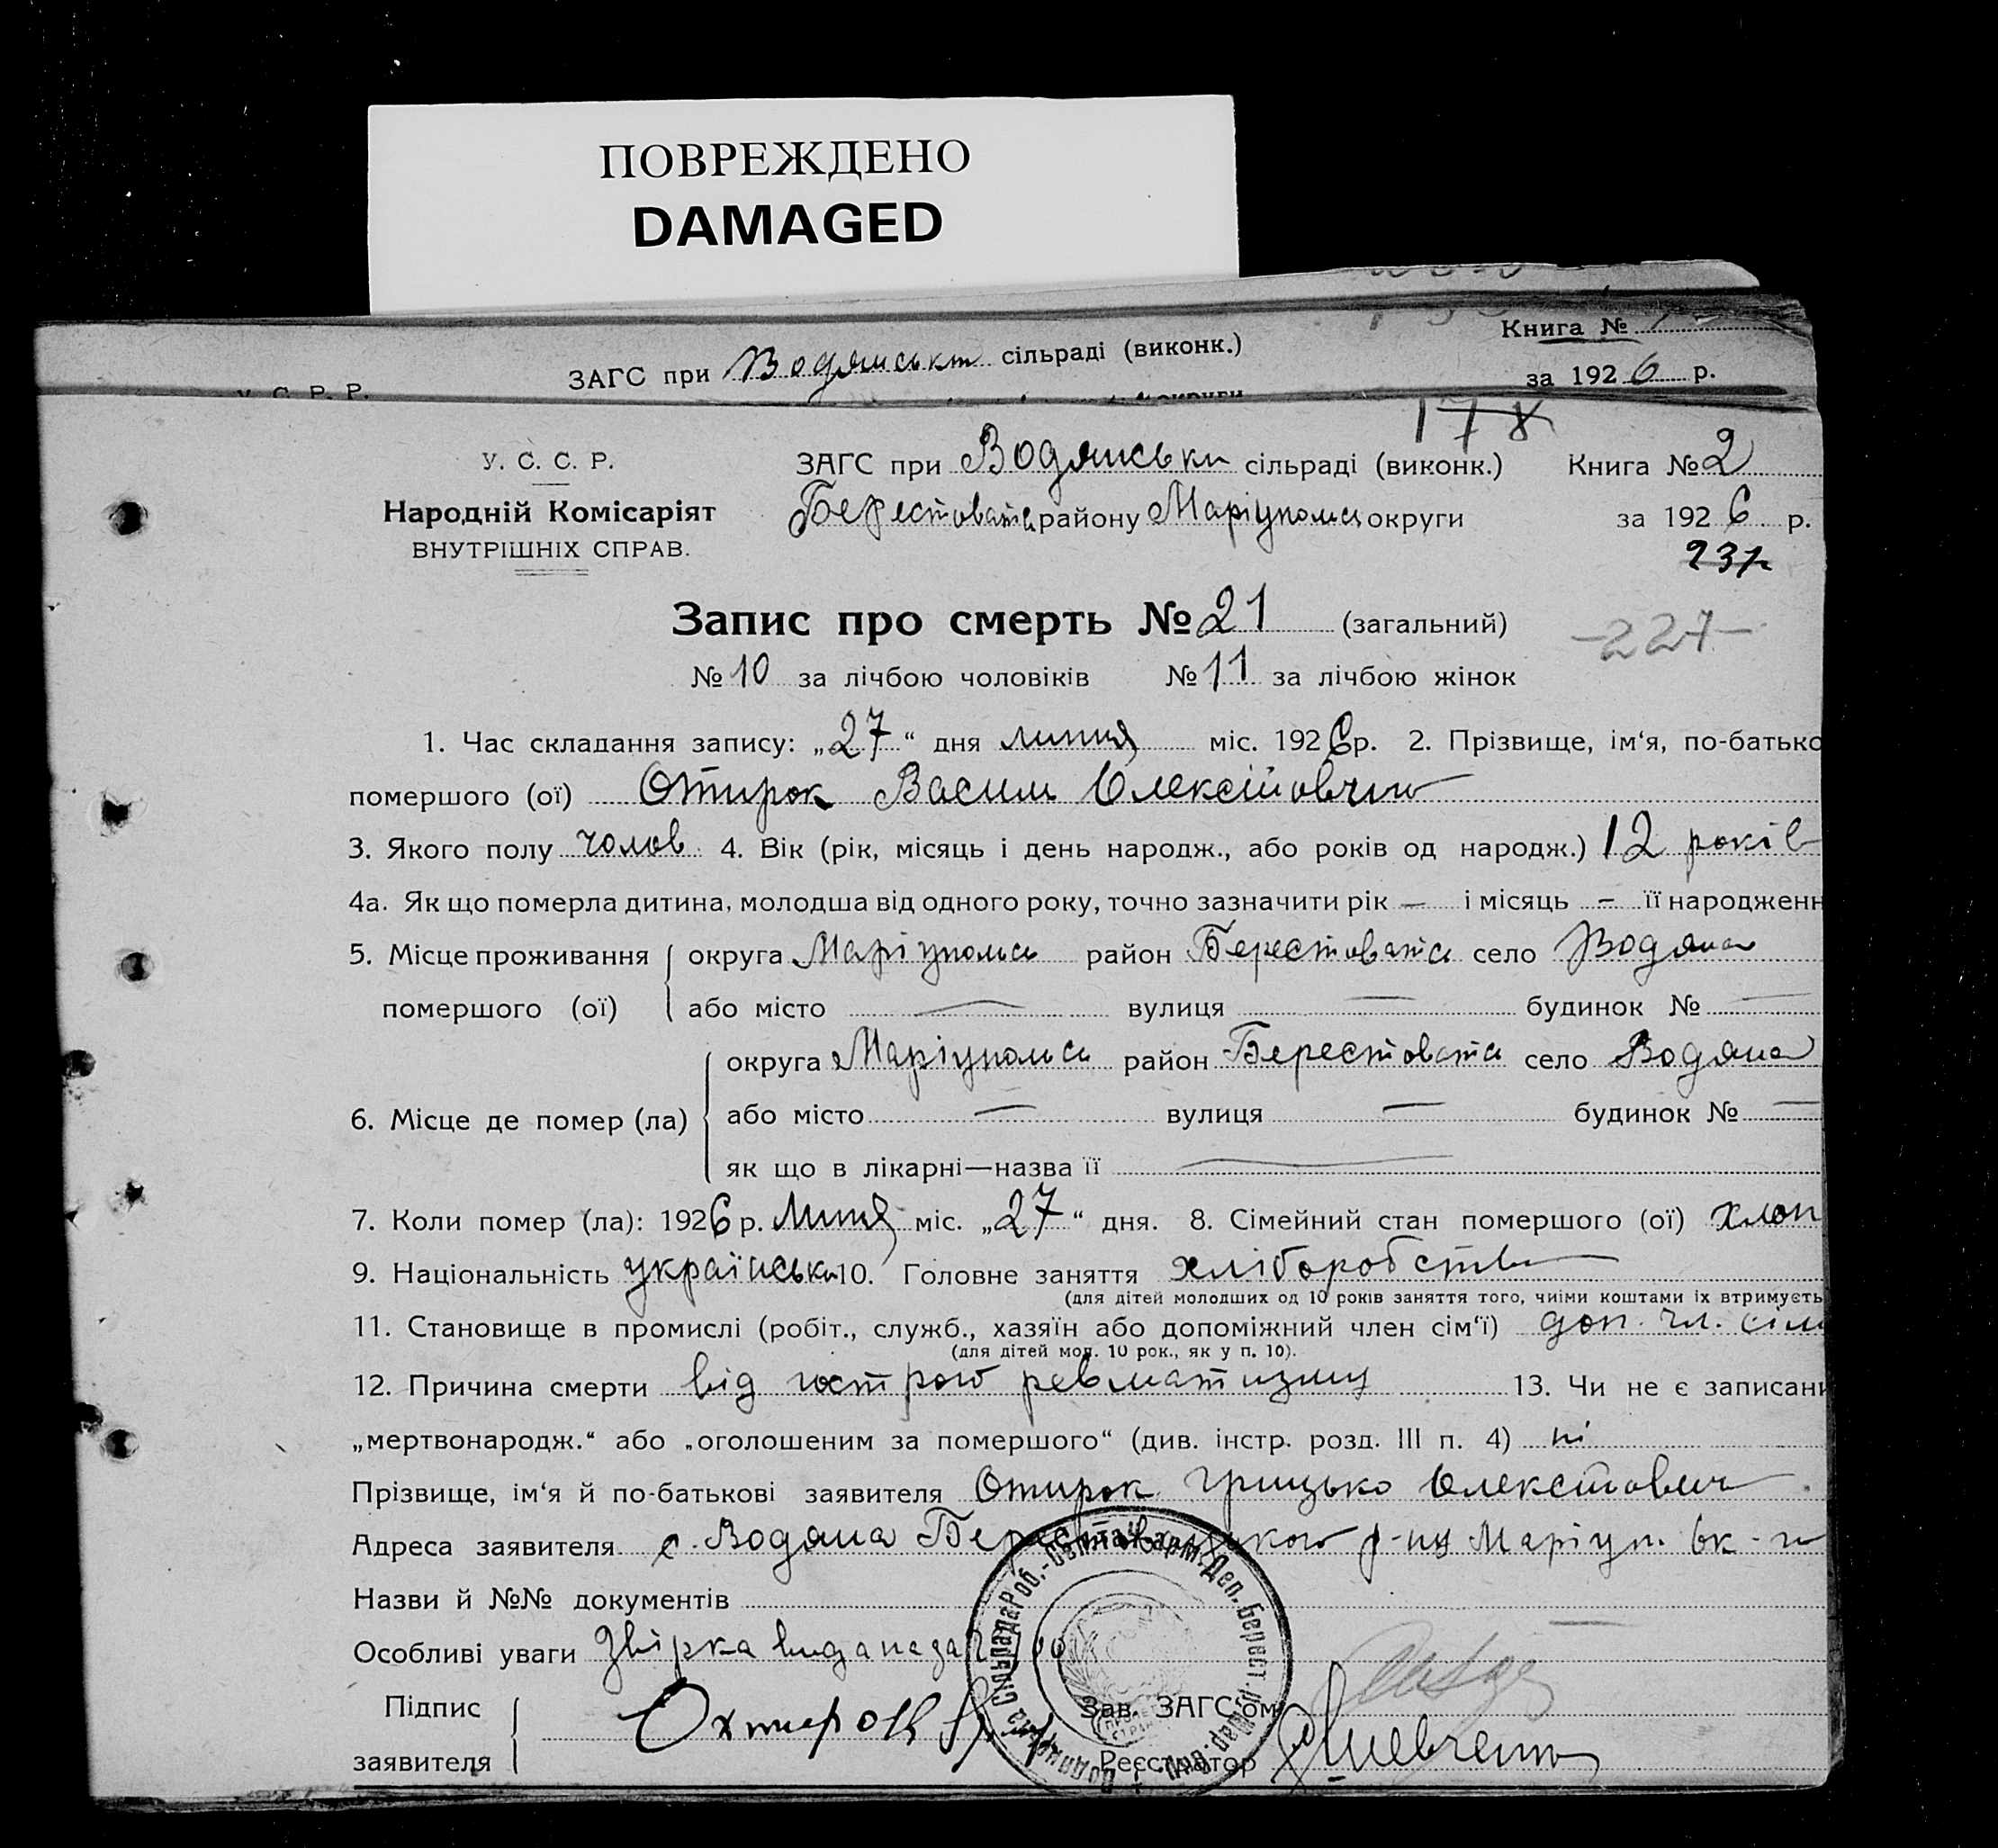 ПОВРЕЖДЕНО
DAMAGED
ЗАГС при Водянськт сільраді (виконк.) Книга №
У. С. Р. Р. за 1926 р.
178
У. С. С. Р. ЗАГС при Водянськи сільраді (виконк.) Книга № 2
Народній Комісаріят Берестовате району Маріупольс округи за 1926 р.
ВНУТРІШНІХ СПРАВ. 237
Запис про смерть № 21 (загальний) -227-
№ 10 за лічбою чоловіків № 11 за лічбою жінок
1. Час складання запису: „27“ дня липня міс. 1926 р. 2. Прізвище, ім‘я, по-батько
помершого (ої) Отирок Васил Олексійович
3. Якого полу чолов 4. Вік (рік, місяць і день народж., або років од народж.) 12 років
4а. Як що померла дитина, молодша від одного року, точно зазначити рік — і місяць — її народженн
5. Місце проживання округа Маріупольс район Берестовате село Водяна
помершого (ої) або місто — вулиця — будинок № —
округа Маріупольс район Берестовате село Водяна
6. Місце де помер (ла) або місто — вулиця — будинок № —
як що в лікарні—назва її —
7. Коли помер (ла): 1926 р. Липня міс. „27“ дня. 8. Сімейний стан помершого (ої) хлоп
9. Національність українська 10. Головне заняття хліборобство
(для дітей молодших од 10 років заняття того, чиїми коштами їх втримуєть
11. Становище в промислі (робіт., служб., хазяїн або допоміжний член сім‘ї) доп. чл. сім
(для дітей мол. 10 рок., як у п. 10).
12. Причина смерти від гострого ревматизму 13. Чи не є записани
„мертвонародж.“ або „оголошеним за помершого“ (див. інстр. розд. III п. 4) ні
Прізвище, ім‘я й по-батькові заявителя Отирок Грицько Олексійович
Адреса заявителя с. Водяна Берестовацького р-ну Маріуп. Ок-и
Назви й №№ документів —
Особливі уваги Звірка видана за
Підпис Охтирок Зав. ЗАГС‘ом
заявителя Реєстратор Шевченко